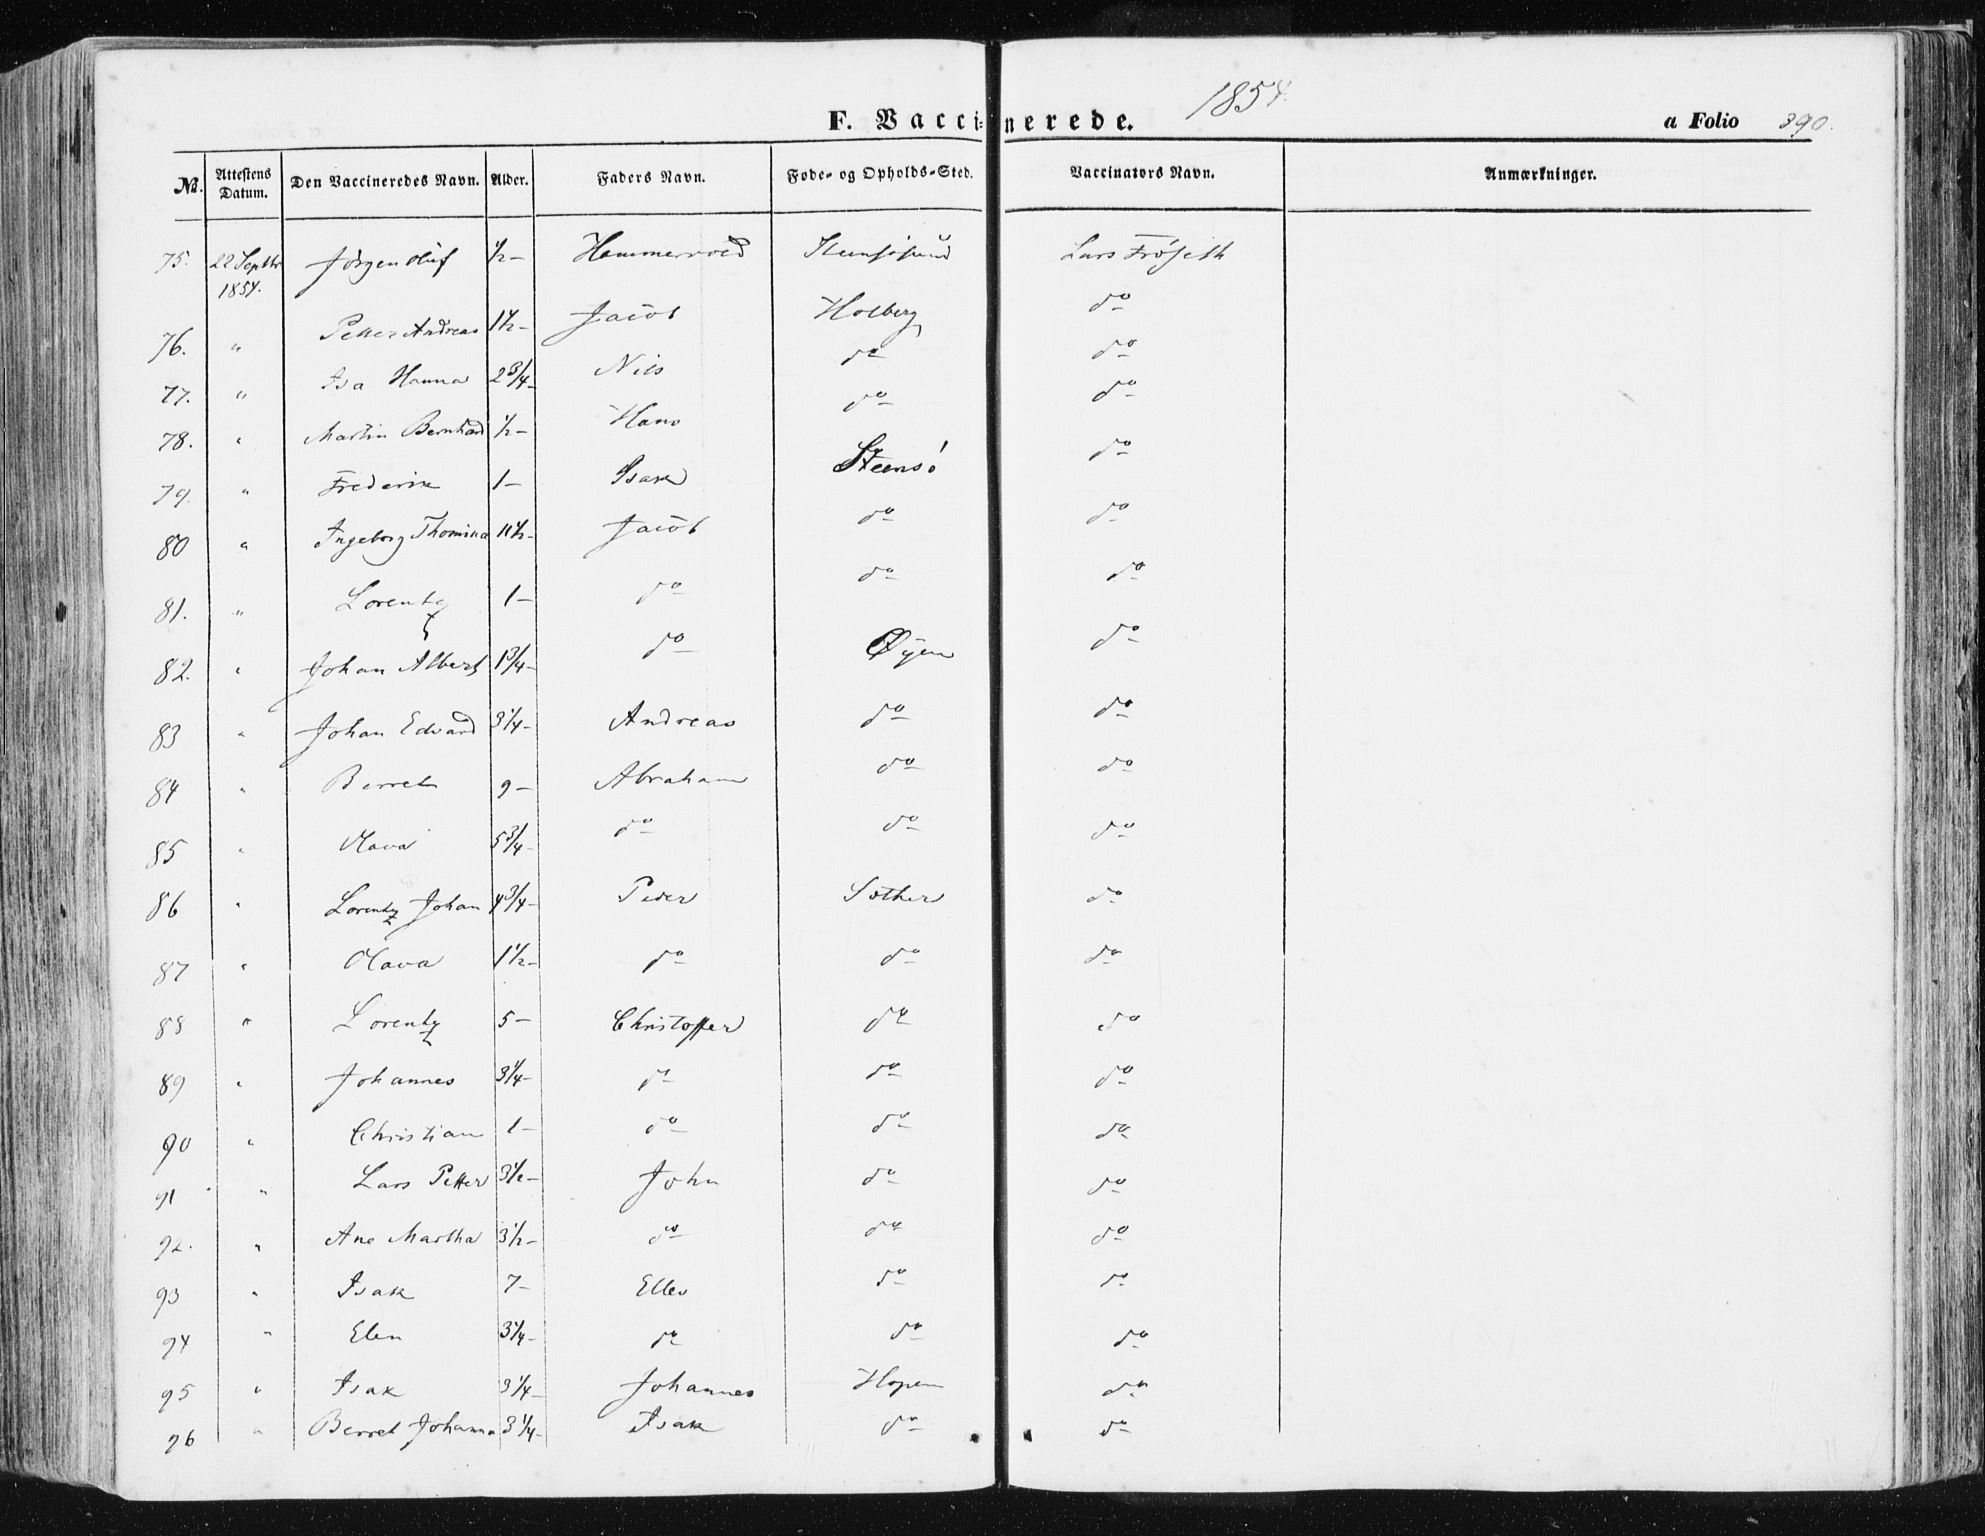 F. Vaccinerede. 1854. a Folio 390.
No. Attestens Datum. Den Vaccineredes Navn. Alder. Faders Navn. Føde- og Opholds-Sted. Vaccinators Navn. Anmærkninger.
75. 22 Septbr 1854. Jørgen Oluf ½- Hammervold Steensøsund Lars Frøseth
76. " Petter Andreas 1½- Jacob Holberg do
77. " Isa Hanna 2¾- Nils do do
78. " Martin Bernhard ½- Hans do do
79. " Frederik 1- Isak Steensø do
80 " Ingeborg Thomina 11½- Jacob do do
81. " Lorentz 1- do do do
82. " Johan Albert 1¾- do Øyen do
83 " Johan Edvard 3¼- Andreas do do
84 " Berret 9- Abraham do do
85 " Olava 5¾- do do do
86 " Lorentz Johan 4¾- Peder Sother do
87 " Olava 1½- do do do
88 " Lorentz 5- Christoffer do do
89 " Johannes 3¼- do do do
90 " Christian 1- do do do
91 " Lars Petter 3½- John do do
92. " Ane Martha 3½- do do do
93 " Isak 7- Elles do do
94 " Elen 3¼- do do do
95 " Isak 3¼- Johannes Hopen do
96 " Berret Johanna 3¼- Isak do do